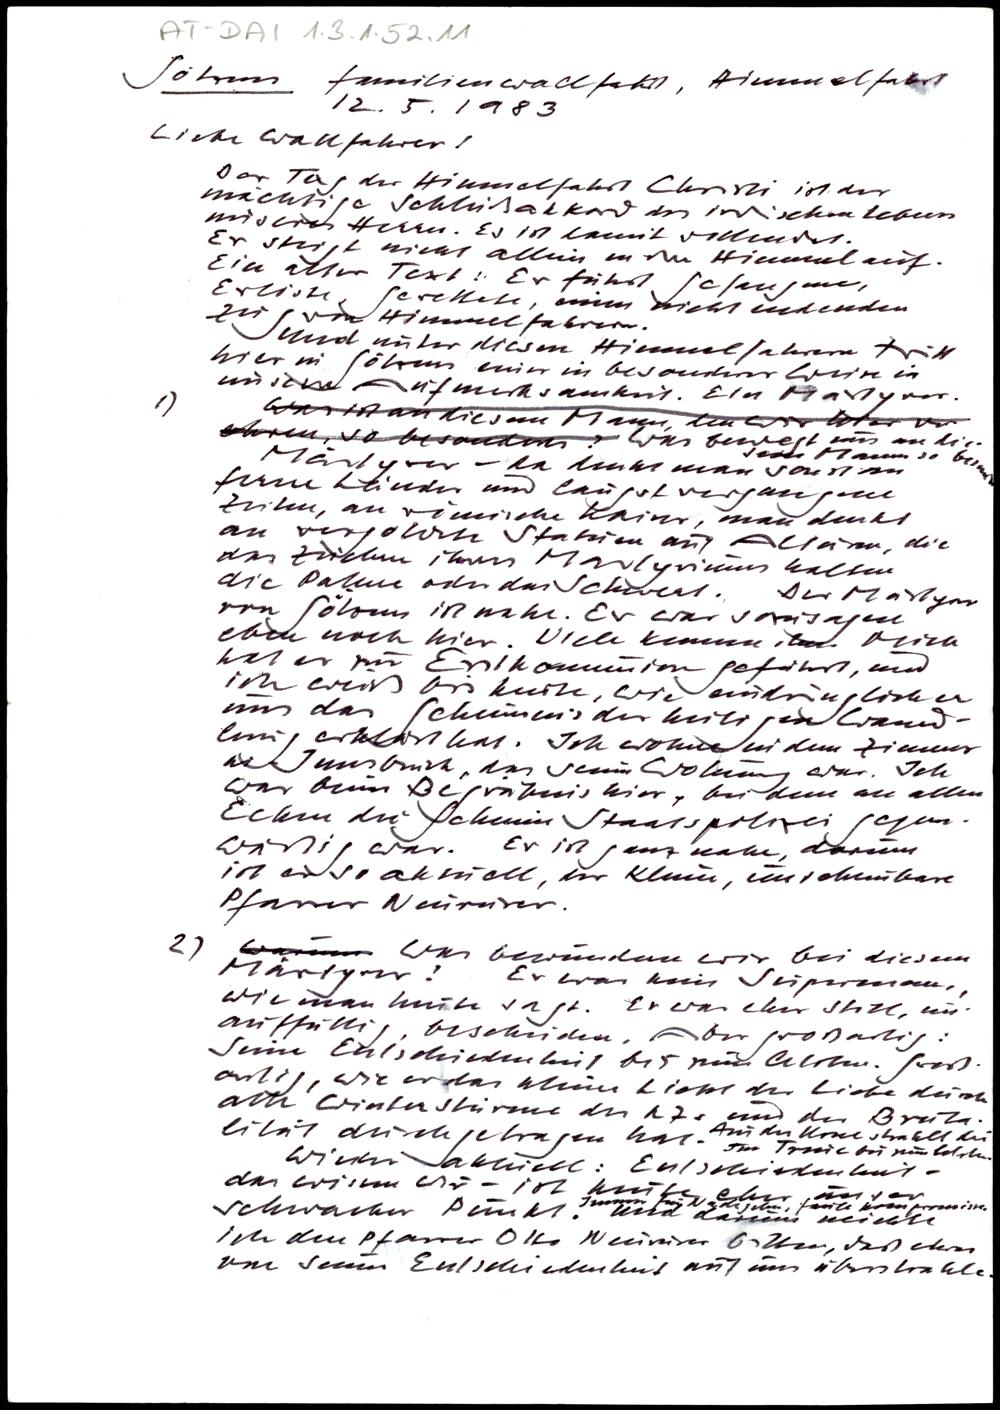 AT-DAI 1.3.1.52.11
Götzens Familienwallfahrt, Himmelfahrt
12. 5. 1983
Liebe Wallfahrer!
Der Tag der Himmelfahrt Christi ist der
mächtige Schlußakkord des irdischen Lebens
unseres Herrn. Es ist damit vollendet.
Er steigt nicht allein in den Himmel auf.
Ein alter Text: Er führt Gefangene,
Erlöste, Gerettete, einen nicht endenden
Zug von Himmelfahrern.
Und unter diesen Himmelfahrern tritt
hier in Götzens einer in besonderer Weise in
unsere Aufmerksamkeit. Ein Martyrer.
1) Was ist an diesem Mann, den wir hier ver-
ehren, so besonders? Was bewegt uns an die-
sem Mann so besonders
Märtyrer – da denkt man sonst an
ferne Länder und längst vergangene
Zeiten, an römische Kaiser, man denkt
an vergoldete Statuen auf Altären, die
das Zeichen ihres Martyriums halten
die Palme oder das Schwert. Der Märtyrer
von Götzens ist nahe. Er war sozusagen
eben noch hier. Viele kennen ihn. Mich
hat er zur Erstkommunion geführt, und
ich weiß bis heute, wie eindringlich er
uns das Geheimnis der heiligen Wand-
lung erklärt hat. Ich wohne in dem Zimmer
in Innsbruck, das seine Wohnung war. Ich
war beim Begräbnis hier, bei dem an allen
Ecken die Geheime Staatspolizei gegen-
wärtig war. Er ist ganz nahe, darum
ist er so aktuell, der kleine, unscheinbare
Pfarrer Neururer.
2) Warum Was bewundern wir bei diesem
Märtyrer? Er war kein Superman,
wie man heute sagt. Er war eher still, un-
auffällig, bescheiden. Aber großartig:
Seine Entschiedenheit bis zum Letzten. Groß-
artig, wie er das kleine Licht der Liebe durch
alle Winterstürme der KZs und der Bruta-
lität durchgetragen hat. Aus der Krone strahlt die
zur Treue bis zum Letzten.
Wieder aktuell: Entschiedenheit –
das wissen wir – ist heute eher unser
schwacher Punkt. Immer faule Kompromisse
Und darum möchte
ich den Pfarrer Otto Neururer bitten, daß etwas
von seiner Entschiedenheit auf uns überstrahle.